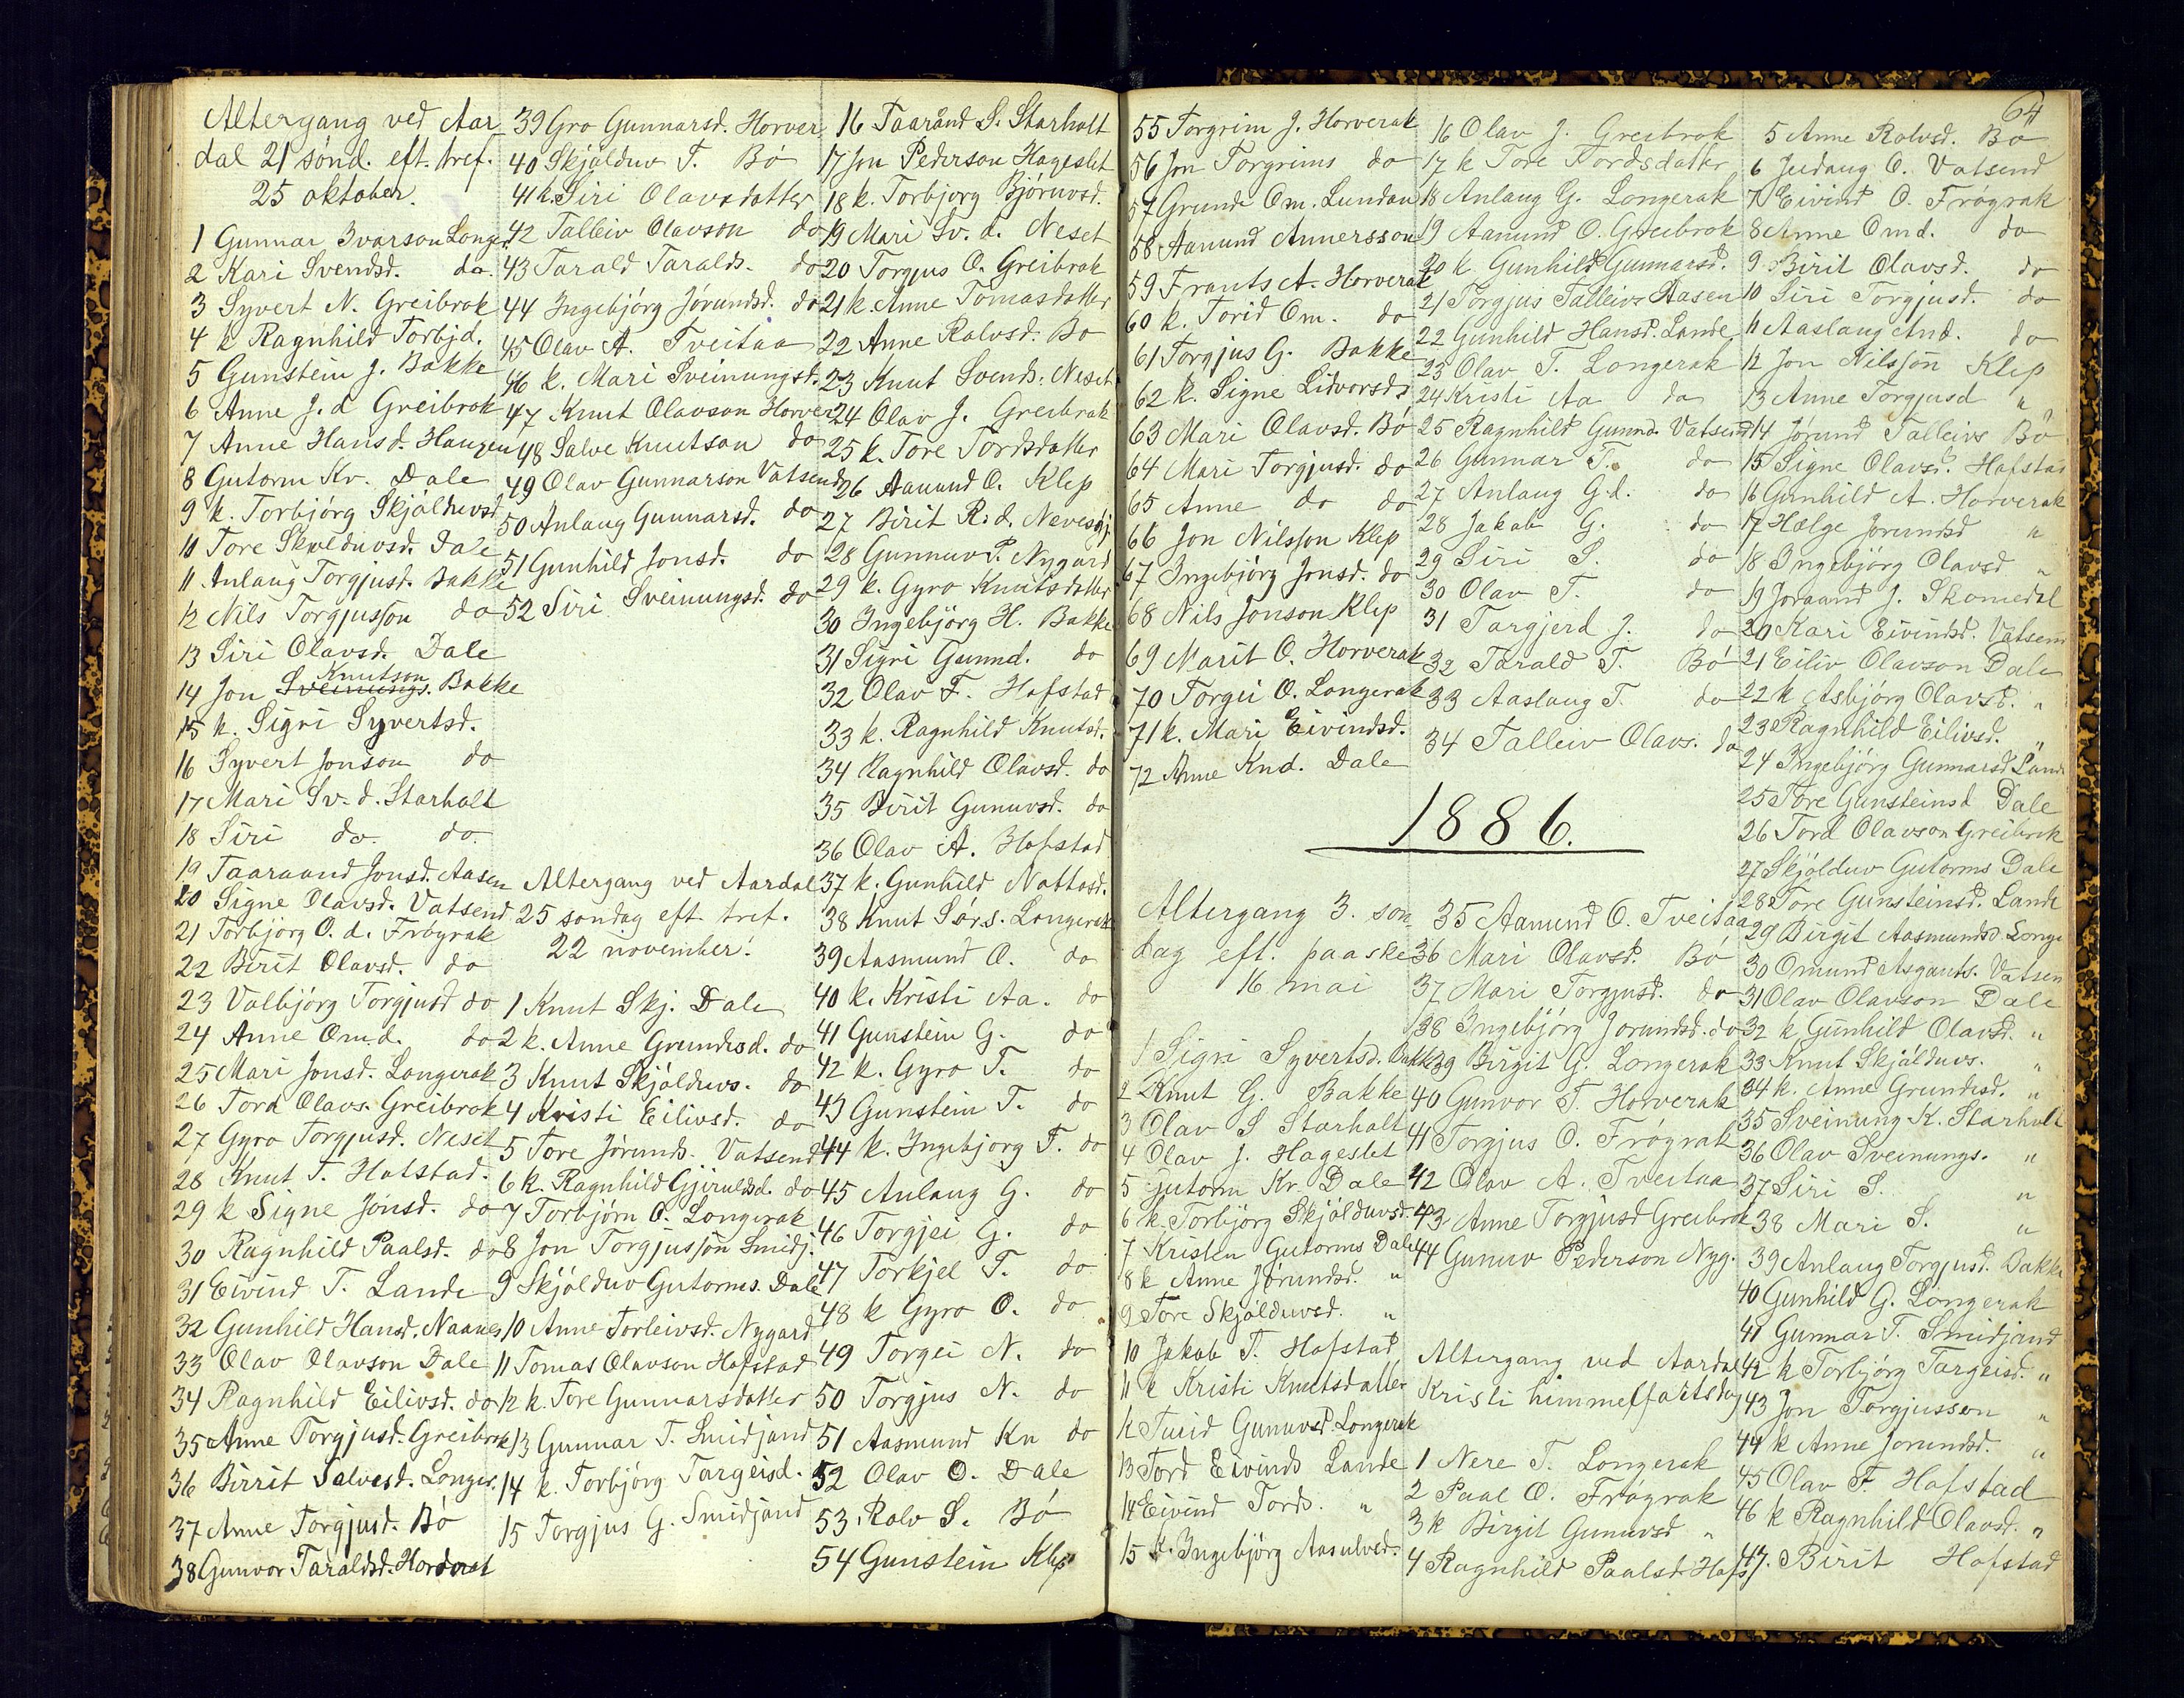 Altergang ved Aar
dal 21 sönd. eft. tref.
25 oktober.
1 Gunnar Ivarson Longer
2 Kari Svendsd. do.
3 Syvert N. Greibrok
4 k Ragnhild Torbjd.
5 Gunstein J. Bakke
6 Anne J. d Greibrok
7 Anne Hansd. Haugen
8 Gutorm Kr. Dale
9 k. Torbjörg Skjölduvsd
10 Tore Skjölduvsd. Dale
11 Anlaug Torgjusd. Bakke
12 Nils Torgjusson do
13 Siri Olavsd. Dale
14 Jon Knutson Bakke
15 k. Sigri Syvertsd.
16 Syvert Jonson do
17 Mari Sv. d. Starholt
18 Siri do. do.
19 Taaraand Jonsd. Aasen
20 Signe Olavsd. Vatsend
21 Torbjörg O. d. Frögrak
22 Birit Olavsd. do
23 Valbjörg Torgjusd do
24 Anne Om.d. do
25 Mari Jonsd. Longerak
26 Tord Olavs. Greibrok
27 Gyro Torgjusd. Neset
28 Knut T. Hofstad.
29 k Signe Jonsd. do
30 Ragnhild Paalsd. do
31 Eivind T. Lande
32 Gunhild Hansd. Naanes
33 Olav Olavson Dale
34 Ragnhild Eilivsd. do
35 Anne Torgjusd. Greibrok
36 Birrit Salvesd. Longer.
37 Anne Torgjusd. Bö
38 Gunvor Taraldsd.
39 Gro Gunnarsd. Horver
40 Skjölduv T. Bö
41 k. Siri Olavsdatter
42 Talleiv Olavson do
43 Tarald Taralds. do
44 Ingebjörg Jörundsd. do
45 Olav A. Tveitaa
46 k. Mari Sveinungsd.
47 Knut Olavson Horver
48 Salve Knutson do
49 Olav Gunnarson Vatsend
50 Anlaug Gunnarsd. do
51 Gunhild Jonsd. do
52 Siri Sveinungsd. do
Altergang ved Aardal
25 sondag eft. tref.
22 november.
1 Knut Skj. Dale
2 k. Anne Grundesd. do
3 Knut Skjölduvs. do
4 Kristi Eilivsd. do
5 Tore Jörunds. Vatsend
6 k. Ragnhild do
7 Torbjörn O. Longerak
8 Jon Torgjusson Smidj.
9 Skjölduv Gutorms. Dale
10 Anne Torleivsd. Nygard
11 Tomas Olavson Hofstad
12 k. Tore Gunnarsdatter
13 Gunnar T. Smidjand
14 k. Torbjörg Targeisd.
15 Torgjus G. Smidjand
16 Taarånd S. Starholt
17 Jon Pederson Hageslet
18 k. Torbjorg Björnvsd.
19 Mari Sv. d. Neset
20 Torgjus O. Greibrok
21 k. Anne Tomasdatter
22 Anne Rolvsd. Bo
23 Knut Svends. Neset
24 Olav J. Greibrok
25 k. Tore Tordsdatter
26 Aanund O. Klep
27 Birit R. d.
28 Gunnuv P. Nygard
29 k. Gyro Knutsdatter
30 Ingebjörg H. Bakke
31 Sigri Gunnd. do
32 Olav F. Hofstad
33 k. Ragnhild Knutsd.
34 Ragnhild Olavsd. do
35 Birit Gunuvsd. do
36 Olav A. Hofstad
37 k. Gunhild Nottosd.
38 Knut Sörs. Longerak
39 Aasmund O. do
40 k. Kristi Aa. do
41 Gunstein G. do
42 k. Gyro T. do
43 Gunstein T. do
44 k. Ingebjorg T. do
45 Anlaug G. do
46 Torgjei G. do
47 Torkjel T. do
48 k Gyro O. do
49 Torgei N. do
50 Torgjus N. do
51 Aasmund Kn do
52 Olav O. Dale
53 Rolv S. Bö
54 Gunstein Klep
64
55 Torgrim J. Horverak
56 Jon Torgrims do
57 Grunde Om. Lundan
58 Aanund Annersson
59 Frants A. Horverak
60 k. Torid Om. do
61 Torgjus G. Bakke
62 k. Signe Lidvorsd.
63 Mari Olavsd. Bö
64 Mari Torgjusd. do
65 Anne do do
66 Jon Nilsson Klep
67 Ingebjörg Jonsd. do
68 Nils Jonson Klep
69 Marit O. Horverak
70 Torgei O. Longerak
71 k. Mari Eivindsd.
72 Anne Knd. Dale
16 Olav J. Greibrok
17 k Tore Tordsdatter
18 Anlaug G. Longerak
19 Aanund O. Greibrok
20 k Gunhild Gunnarsd.
21 Torgjus Talleivs Aasen
22 Gunhild Hansd. Lande
23 Olav T. Longerak
24 Kristi Aa do
25 Ragnhild Gunnd. Vatsend
26 Gunnar T. do
27 Anlaug G.d. do
28 Jakob G. do
29 Siri S. do
30 Olav T. do
31 Targjerd J. do
32 Tarald T. Bö
33 Aaslaug T. do
34 Talleiv Olavs. do
1886.
Altergang 3. son
dag eft. paaske
16 mai
1 Sigri Syvertsd. Bakke
2 Knut G. Bakke
3 Olav S Starholt
4 Olav J. Hageslet
5 Gutorm Kr. Dale
6 k. Torbjörg Skjölduvsd.
7 Kristen Gutorms Dale
8 k Anne Jörundsd. "
9 Tore Skjölduvsd. "
10 Jakob T. Hofstad
11 k Kristi Knutsdatter
12 Turid Gunuvsd. Longerak
13 Tord Eivinds Lande
14 Eivind Tords. "
15 k. Ingebjörg Aasulvsd.
35 Aamund O. Tveitaa
36 Mari Olavsd. Bö
37 Mari Torgjusd. do
38 Ingebjörg Jorundsd. do
39 Birgit G. Longerak
40 Gunvor T. Horverak
41 Torgjus O. Frögrak
42 Olav A. Tveitaa
43 Anne Torgjusd Greibrok
44 Gunuv Pederson Nyg.
Altergang ved Aardal
Kristi himmelfartsdag
1 Nere T. Longerak
2 Paal O. Frögrak
3 k Birgit Gunuvsd "
4 Ragnhild Paalsd Hofs
5 Anne Rolvsd. Bo
6 O. Vatsend
7 Eivind O. Frögrak
8 Anne Omd. do
9 Birit Olavsd. do
10 Siri Torgjusd. do
11 Aaslaug And. do
12 Jon Nilsson Klep
13 Anne Torgjusd "
14 Jörund Talleivs Bö
15 Signe Olavsd. Hofstad
16 Gunhild A. Horverak
17 Hælge Jorundsd "
18 Ingebjörg Olavsd "
19 Joraand J. Skomedal
20 Kari Eivindsd. Vatsend
21 Eiliv Olavson Dale
22 k Asbjörg Olavsd. "
23 Ragnhild Eilivsd. "
24 Ingebjörg Gunnarsd Land
25 Tore Gunsteinsd Dale
26 Tord Olavson Greibrok
27 Skjölduv Gutorms Dale
28 Tore Gunsteinsd. Lande
29 Birgit Aasmundsd. Longe
30 Omund Asgauts. Vatsen
31 Olav Olavson Dale
32 k Gunhild Olavsd. "
33 Knut Skjölduvs. "
34 k. Anne Grundesd. "
35 Sveinung K. Starholt
36 Olav Sveinungs. "
37 Siri S. "
38 Mari S. "
39 Anlaug Torgjusd. Bakke
40 Gunhild G. Longerak
41 Gunnar T. Smidjand
42 k Torbjörg Targeisd. "
43 Jon Torgjusson "
44 k Anne Jorundsd. "
45 Olav F. Hofstad
46 k Ragnhild Olavsd. "
47. Birit Hofstad